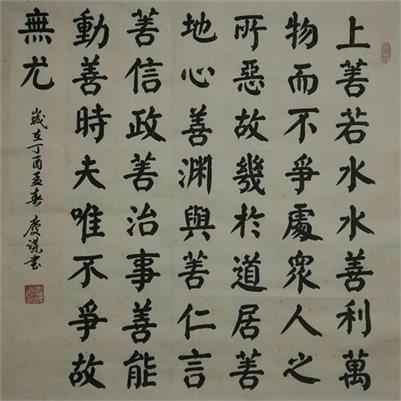 上善若水水善利萬
物而不爭處衆人之
所惡故幾於道居善
地心善渊與善仁言
善信政善治事善能
動善時夫唯不爭故
無尤
歲在丁酉孟春 书